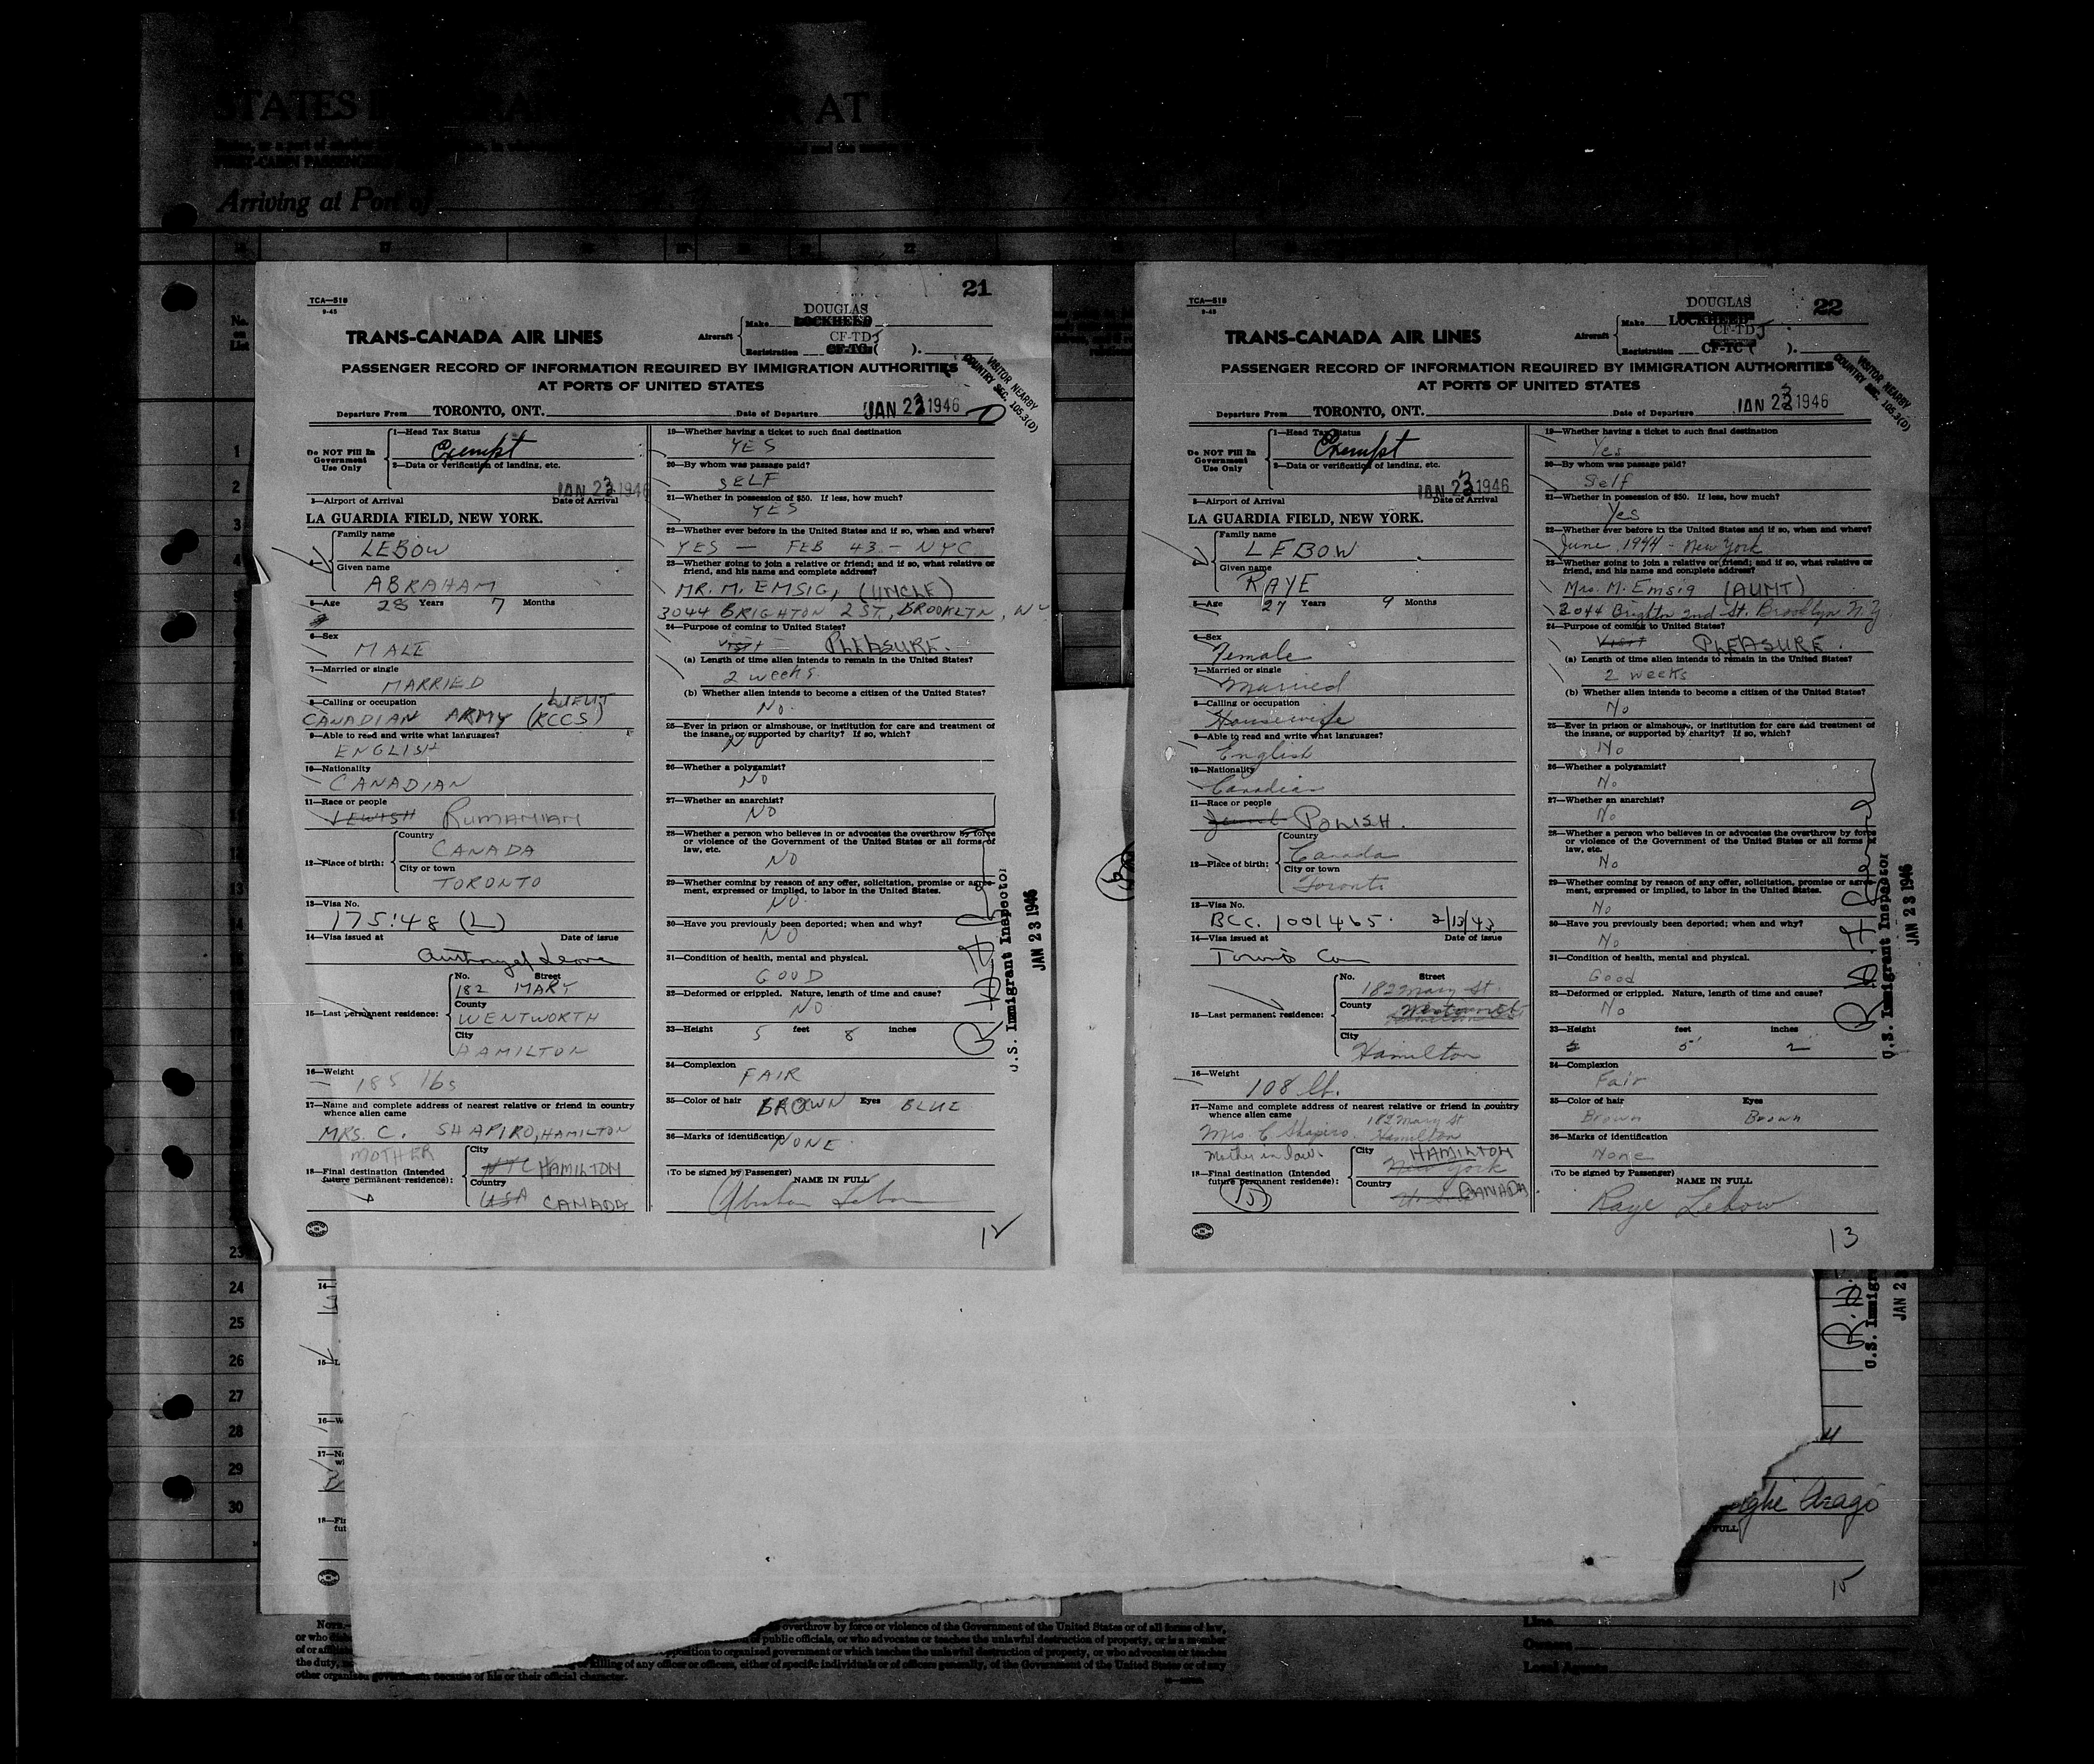 Arriving at Port of
21
TCA—518
9-45
TRANS-CANADA AIR LINES
Aircraft
Make
DOUGLAS
LOCKHEED
Registration
CF-TDJ
CF-TC( ).
PASSENGER RECORD OF INFORMATION REQUIRED BY IMMIGRATION AUTHORITIES
AT PORTS OF UNITED STATES
VISITOR NEARBY
COUNTRY SEC. 105.3(D)
Departure From TORONTO, ONT. Date of Departure JAN 23 1946
Do NOT Fill In
Government
Use Only
1—Head Tax Status
Exempt
2—Data or verification of landing, etc.
JAN 23 1946
3—Airport of Arrival Date of Arrival
LA GUARDIA FIELD, NEW YORK.
Family name
LEBOW
Given name
ABRAHAM
5—Age 28 Years 7 Months
6—Sex
MALE
7—Married or single
MARRIED
8—Calling or occupation LIEUT
CANADIAN ARMY (RCCS)
9—Able to read and write what languages?
ENGLISH
10—Nationality
CANADIAN
11—Race or people
JEWISH RUMANIAN
12—Place of birth:
Country
CANADA
City or town
TORONTO
13—Visa No.
175:48 (L)
14—Visa issued at Date of issue
15—Last permanent residence:
No. Street
182 MARY
County
WENTWORTH
City
HAMILTON
16—Weight
185 lbs
17—Name and complete address of nearest relative or friend in country
whence alien came
MRS. C. SHAPIRO, HAMILTON
MOTHER
18—Final destination (Intended
future permanent residence):
City
NYC HAMILTON
Country
USA CANADA
19—Whether having a ticket to such final destination
YES
20—By whom was passage paid?
SELF
21—Whether in possession of $50. If less, how much?
YES
22—Whether ever before in the United States and if so, when and where?
YES — FEB 43 - NYC
23—Whether going to join a relative or friend; and if so, what relative or
friend, and his name and complete address?
MR. M. EMSIG, (UNCLE)
3044 BRIGHTON 2 ST., BROOKLYN, NY
24—Purpose of coming to United States?
Visit — PLEASURE.
(a) Length of time alien intends to remain in the United States?
2 weeks.
(b) Whether alien intends to become a citizen of the United States?
No.
25—Ever in prison or almshouse, or institution for care and treatment of
the insane, or supported by charity? If so, which?
NO
26—Whether a polygamist?
NO
27—Whether an anarchist?
NO
28—Whether a person who believes in or advocates the overthrow by force
or violence of the Government of the United States or all forms of
law, etc.
NO
29—Whether coming by reason of any offer, solicitation, promise or agree-
ment, expressed or implied, to labor in the United States.
NO.
30—Have you previously been deported; when and why?
NO
31—Condition of health, mental and physical.
GOOD
32—Deformed or crippled. Nature, length of time and cause?
NO
33—Height 5 feet 8 inches
34—Complexion
FAIR
35—Color of hair BROWN Eyes BLUE
36—Marks of identification
NONE
(To be signed by Passenger)
NAME IN FULL
Abraham Lebow
12
U.S. Immigrant Inspector
JAN 23 1946
22
TCA—518
9-45
TRANS-CANADA AIR LINES
Aircraft
Make
DOUGLAS
LOCKHEED
Registration
CF-TDJ
CF-TC( ).
PASSENGER RECORD OF INFORMATION REQUIRED BY IMMIGRATION AUTHORITIES
AT PORTS OF UNITED STATES
VISITOR NEARBY
COUNTRY SEC. 105.3(D)
Departure From TORONTO, ONT. Date of Departure JAN 23 1946
Do NOT Fill In
Government
Use Only
1—Head Tax Status
Exempt
2—Data or verification of landing, etc.
JAN 23 1946
3—Airport of Arrival Date of Arrival
LA GUARDIA FIELD, NEW YORK.
Family name
LEBOW
Given name
RAYE
5—Age 27 Years 9 Months
6—Sex
Female
7—Married or single
Married
8—Calling or occupation
Housewife
9—Able to read and write what languages?
English
10—Nationality
Canadian
11—Race or people
Jewish POLISH.
12—Place of birth:
Country
Canada
City or town
Toronto
13—Visa No.
BCC. 1001465. 2/13/43
14—Visa issued at Date of issue
Toronto Can
15—Last permanent residence:
No. Street
182 Mary St.
County
City
Hamilton
16—Weight
108 lb.
17—Name and complete address of nearest relative or friend in country
whence alien came 182 Mary St
Mrs. C Shapiro Hamilton
Mother in law.
18—Final destination (Intended
future permanent residence):
City
HAMILTON
New York
Country
CANADA
19—Whether having a ticket to such final destination
Yes
20—By whom was passage paid?
Self
21—Whether in possession of $50. If less, how much?
Yes
22—Whether ever before in the United States and if so, when and where?
June 1944 - New York
23—Whether going to join a relative or friend; and if so, what relative or
friend, and his name and complete address?
Mrs. M. Emsig (AUNT)
3044 Brighton 2nd St. Brooklyn N.Y
24—Purpose of coming to United States?
Visit PLEASURE.
(a) Length of time alien intends to remain in the United States?
2 weeks
(b) Whether alien intends to become a citizen of the United States?
No
25—Ever in prison or almshouse, or institution for care and treatment of
the insane, or supported by charity? If so, which?
No
26—Whether a polygamist?
No
27—Whether an anarchist?
No
28—Whether a person who believes in or advocates the overthrow by force
or violence of the Government of the United States or all forms of
law, etc.
No
29—Whether coming by reason of any offer, solicitation, promise or agree-
ment, expressed or implied, to labor in the United States.
No
30—Have you previously been deported; when and why?
No
31—Condition of health, mental and physical.
Good
32—Deformed or crippled. Nature, length of time and cause?
No
33—Height feet inches
5' 2
34—Complexion
Fair
35—Color of hair Eyes
Brown Brown
36—Marks of identification
None
(To be signed by Passenger)
NAME IN FULL
Raye Lebow
13
U.S. Immigrant Inspector
JAN 23 1946
23
24
25
26
27
28
29
30
FULL
15
overthrow by force or violence of the Government of the United States or of all forms of law,
of public officials, or who advocates or teaches the unlawful destruction of property, or is a member
opposition to organized government or which teaches the unlawful destruction of property, or who advocates or teaches
killing of any officer or officers, either of specific individuals or of officers generally, of the Government of the United States or of any
other organized government because of his or their official character.
Line
Owners
Local Agents